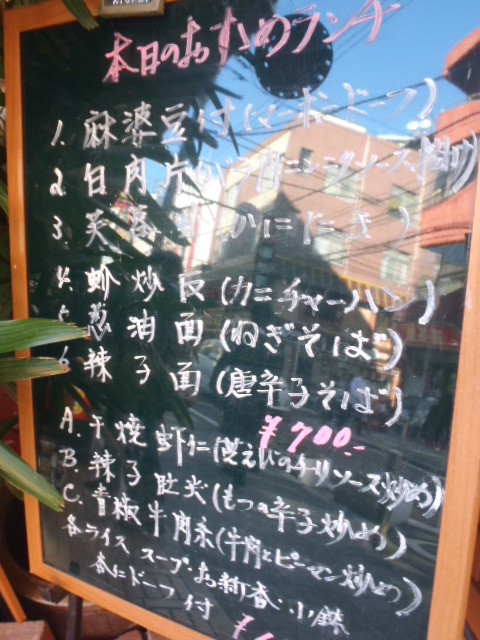 本日のおすすめランチ
1. 麻婆豆付(マーボードーフ)
2. 白肉片(ガラ肉ニンニクソース掛け)
3. 芙蓉蟹(かに玉)
4. 蚧炒反(カニチャーハン)
5. 葱油面(ねぎそば)
6. 辣子面(唐辛子そば)
¥700.-
A. 干焼虾仁(芝えびのチリソース炒め)
B. 辣子肚尖(もつの辛子炒め)
C. 青椒牛肉糸(牛肉とピーマン炒め)
各ライス スープ・お新香・小鉢
杏仁ドーフ付